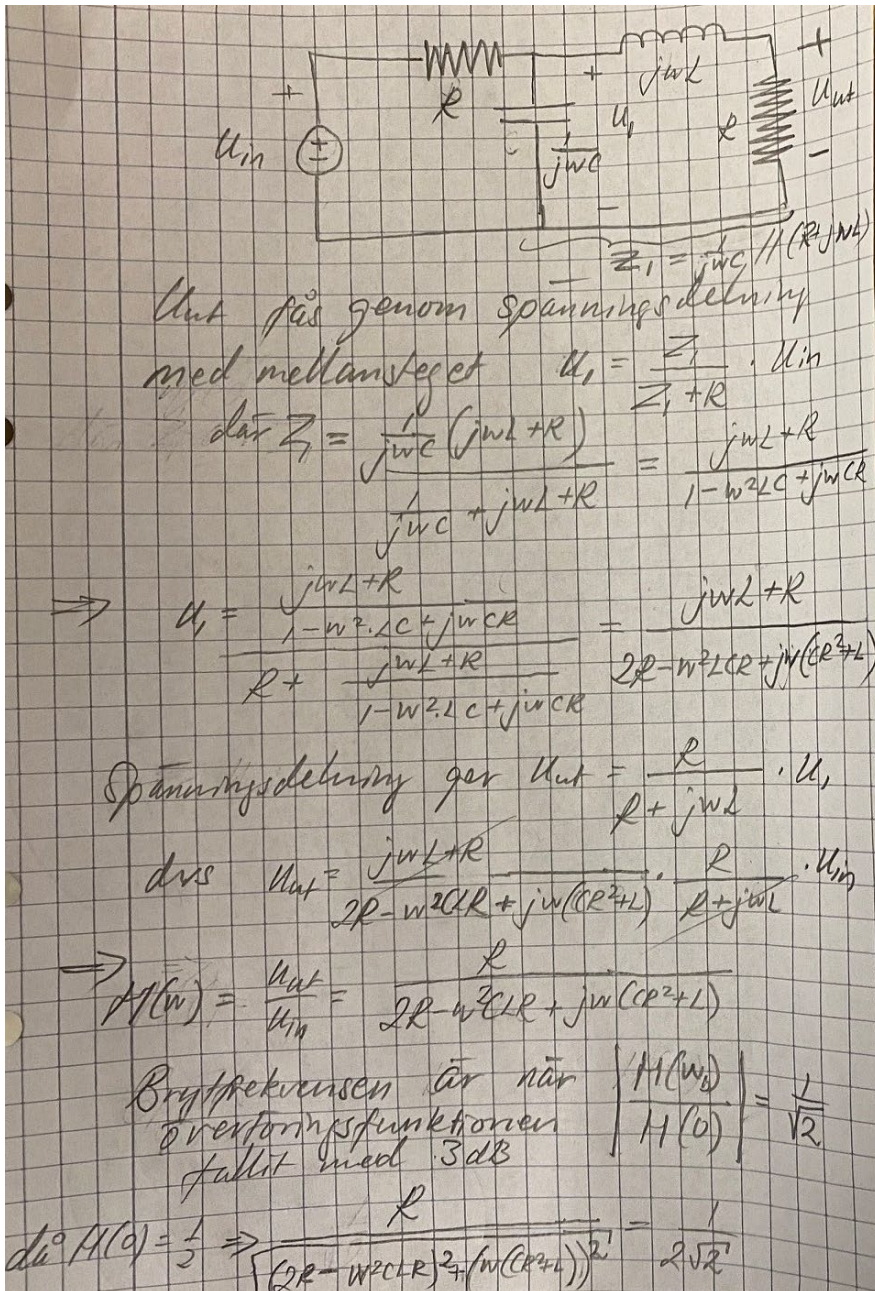 + R + jwL +
Uin 1/jwC U₁ R Uut
- -
Z₁ = 1/jwC // (R+jwL)
Uut fås genom spänningsdelning
med mellansteget U₁ = Z₁/(Z₁+R) · Uin
där Z₁ = (1/jwC (jwL+R))/(1/jwC + jwL+R) = (jwL+R)/(1-w²LC+jwCR)
⇒ U₁ = ((jwL+R)/(1-w²·LC+jwCR))/(R+ (jwL+R)/(1-w²·LC+jwCR)) = (jwL+R)/(2R-w²LCR+jw(CR²+L)
Spänningsdelning ger Uut = R/(R+jwL) · U₁
dvs Uut = (jwL+R)/(2R-w²CLR+jw(CR²+L)) · R/(R+jwL) · Uin
⇒ H(w) = Uut/Uin = R/(2R-w²CLR+jw(CR²+L))
Brytfrekvensen är när |H(w₀)/H(0)| = 1/√2
överföringsfunktionen
fallit med 3dB
då H(0) = 1/2 ⇒ R/√((2R-w²CLR)²+(w(CR²+L))²) = 1/(2√2)